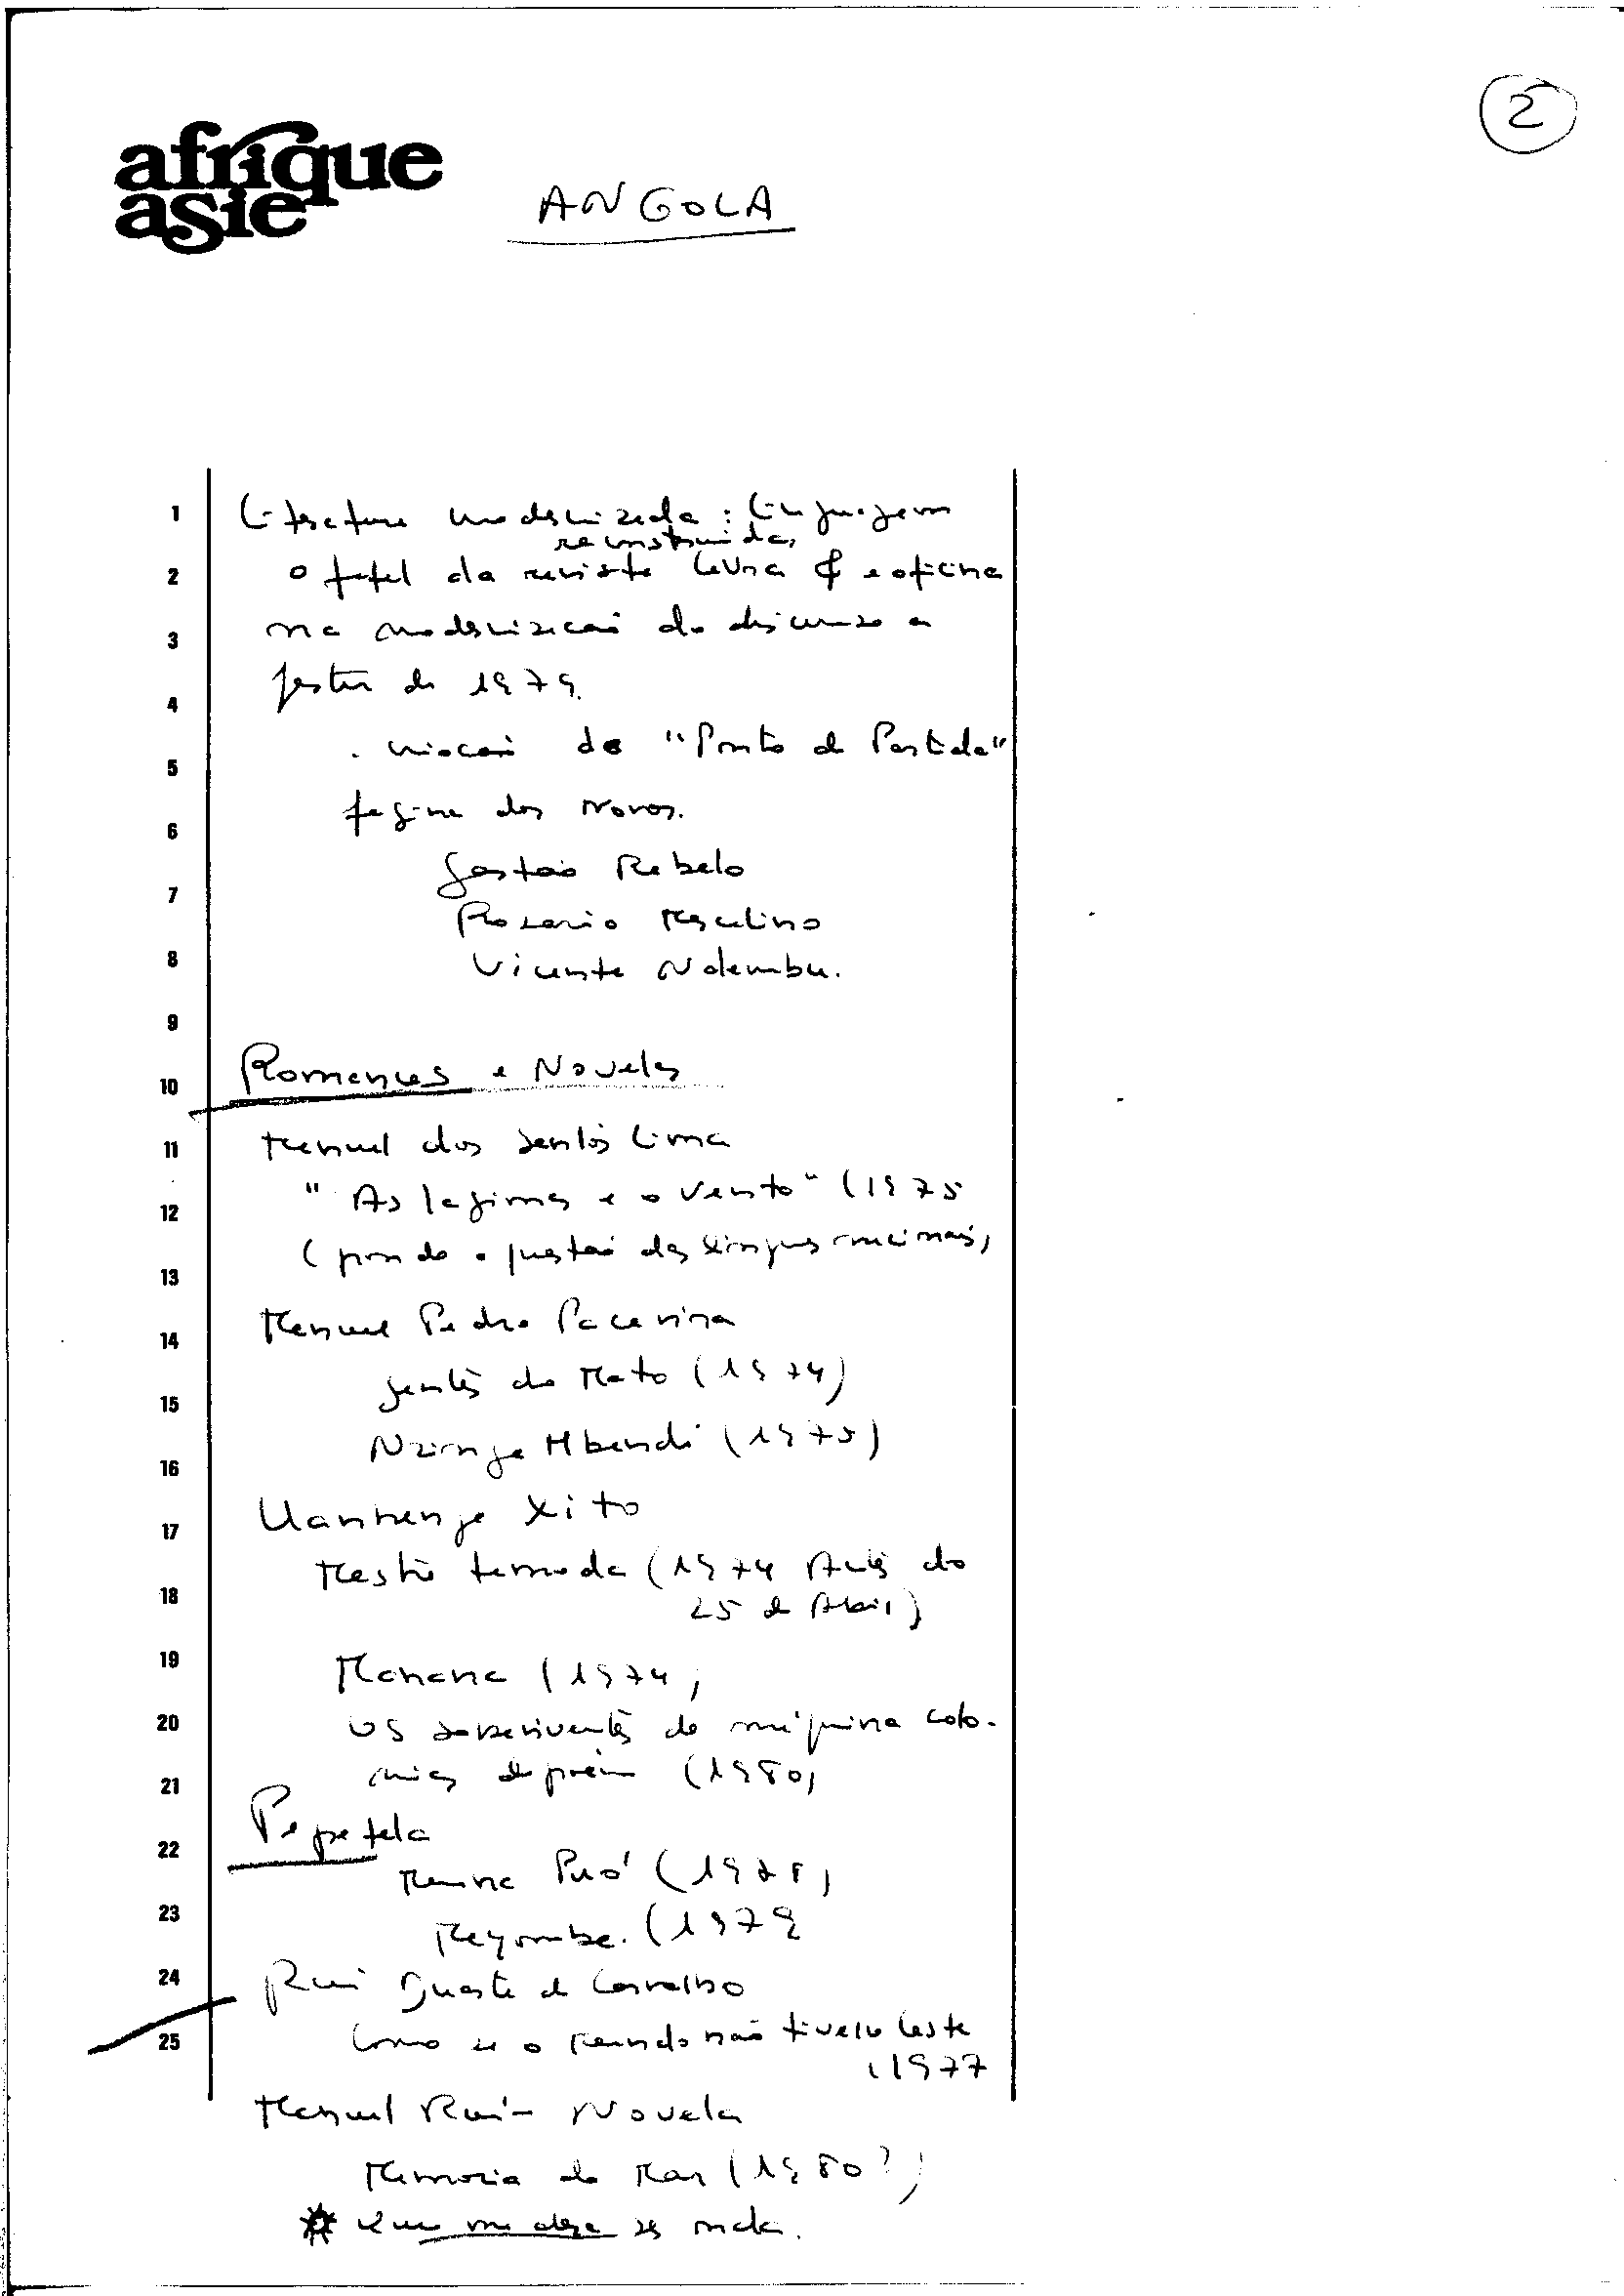 2
afrique
asie
ANGOLA
1 Literatura modernizada : linguagem
reconstruida,
2 o papel da revista Lavra & e oficina
3 na modernização do discurso a
4 partir de 1979.
5 . criação do "Ponto de Partida"
6 pagina dos Novos.
7 Gastão Rebelo
Rosario Marcelino
8 Vicente Ndembu.
9
10 Romances e Novelas
11 Manuel dos Santos Lima
12 "As lagrimas e o vento" (1975
13 (pondo a questão das linguas nacionais)
14 Manuel Pedro Pacavira
15 Gentes do Mato (1974)
16 Nzinga Mbandi (1975)
17 Uanhenga Xito
18 Mestre tamoda (1974 Antes do
25 de Abril)
19 Manana (1974)
20 os sobreviventes da máquina colo-
21 nial depõem (1980)
22 Pepetela
Muana Puó (1978)
23 Mayombe. (1979
24 Rui Duarte de Carvalho
25 Como se o Mundo não tivesse Leste
(1977
Manuel Rui - Novela
Memoria do Mar (1980?)
se mata.